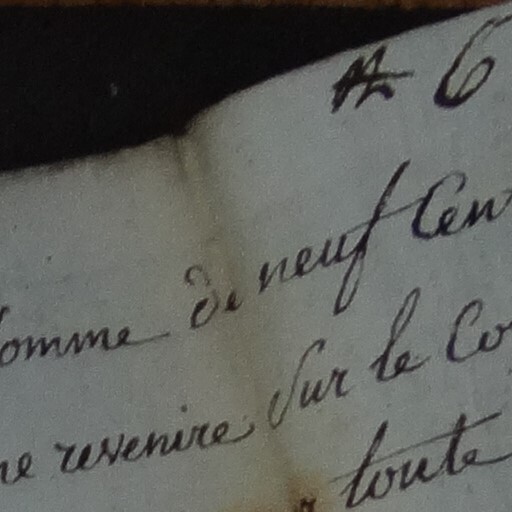 6
somme de neuf Cen
ne revenire Sur le Co
toute